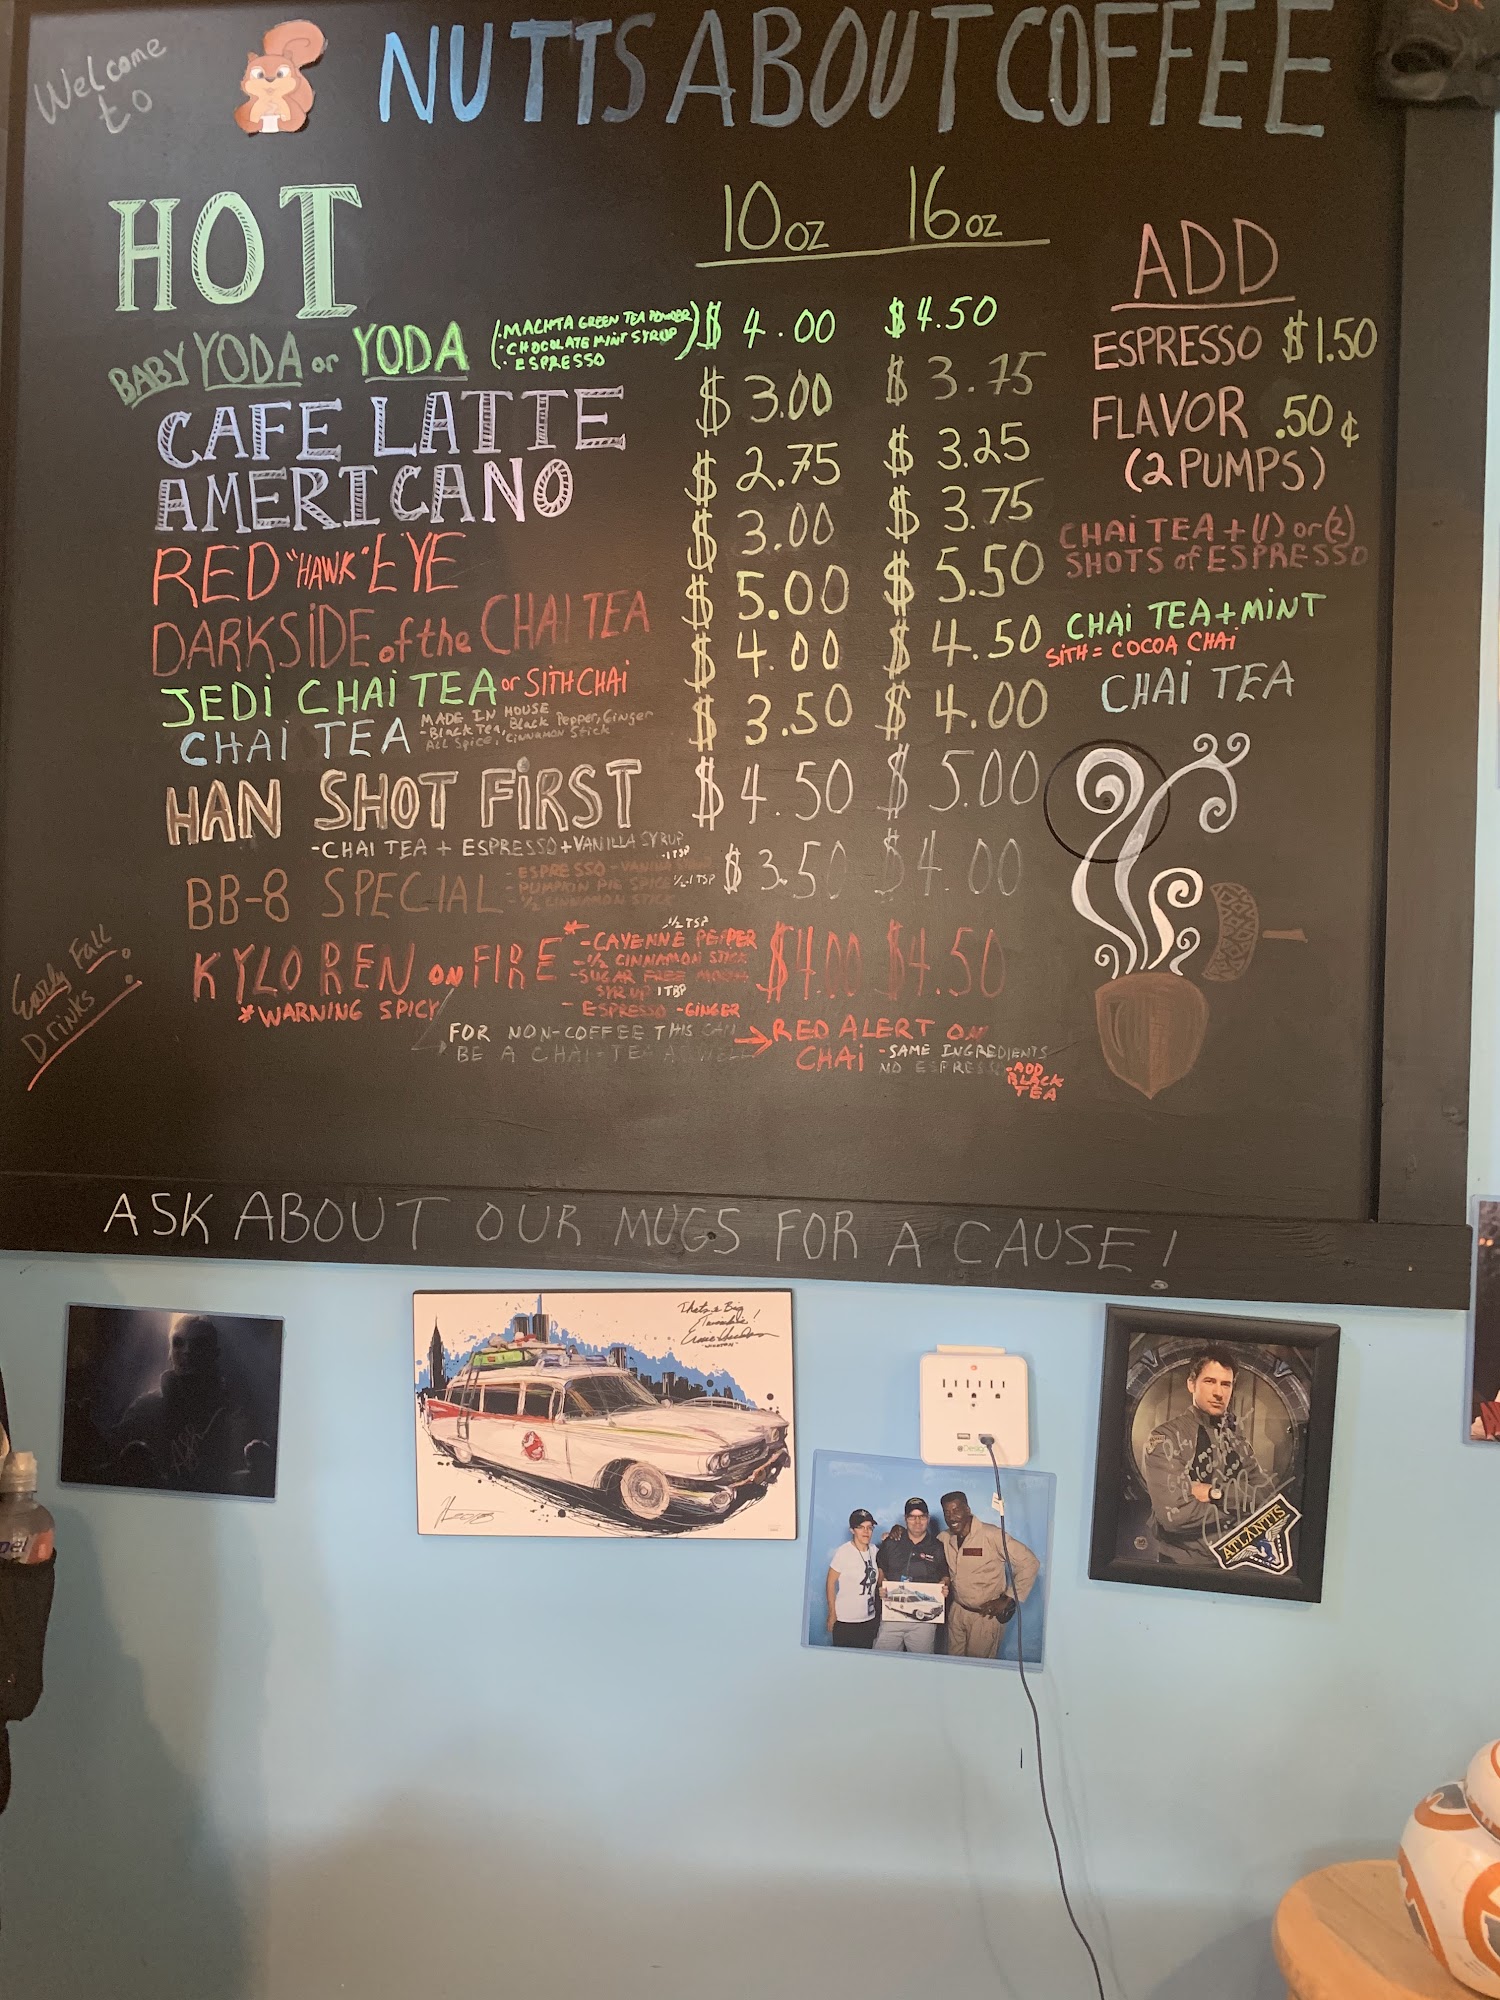 Welcome to
NUTTS ABOUT COFFEE
HOT
10 oz 16 oz
BABY YODA or YODA (·MACHTA GREEN TEA POWDER ·CHOCOLATE MINT SYRUP ·ESPRESSO) $4.00 $4.50
CAFE LATTE $3.00 $3.75
AMERICANO $2.75 $3.25
RED "HAWK" EYE $3.00 $3.75
DARKSIDE of the CHAI TEA $5.00 $5.50
JEDI CHAI TEA or SITH CHAI $4.00 $4.50
CHAI TEA MADE IN HOUSE - Black Tea, Black Pepper, Ginger All Spice, Cinnamon Stick $3.50 $4.00
HAN SHOT FIRST $4.50 $5.00
-CHAI TEA + ESPRESSO + VANILLA SYRUP
BB-8 SPECIAL $3.50 $4.00
-ESPRESSO -VANILLA -1 TSP
-PUMPKIN PIE SPICE ½-1 TSP
-½ CINNAMON STICK
KYLO REN on FIRE * $4.00 $4.50
*WARNING SPICY
-CAYENNE PEPPER ½ TSP
-½ CINNAMON STICK
-SUGAR FREE MOCHA
SYRUP 1 TBP
-ESPRESSO -GINGER
FOR NON-COFFEE THIS CAN
BE A CHAI-TEA AS WELL
RED ALERT ON
CHAI -SAME INGREDIENTS
NO ESPRESSO -ADD
BLACK
TEA
Early Fall
Drinks!
ADD
ESPRESSO $1.50
FLAVOR .50¢
(2 PUMPS)
CHAI TEA + (1) or (2)
SHOTS of ESPRESSO
CHAI TEA + MINT
SITH = COCOA CHAI
CHAI TEA
ASK ABOUT OUR MUGS FOR A CAUSE!
That's a Big
ATLANTIS